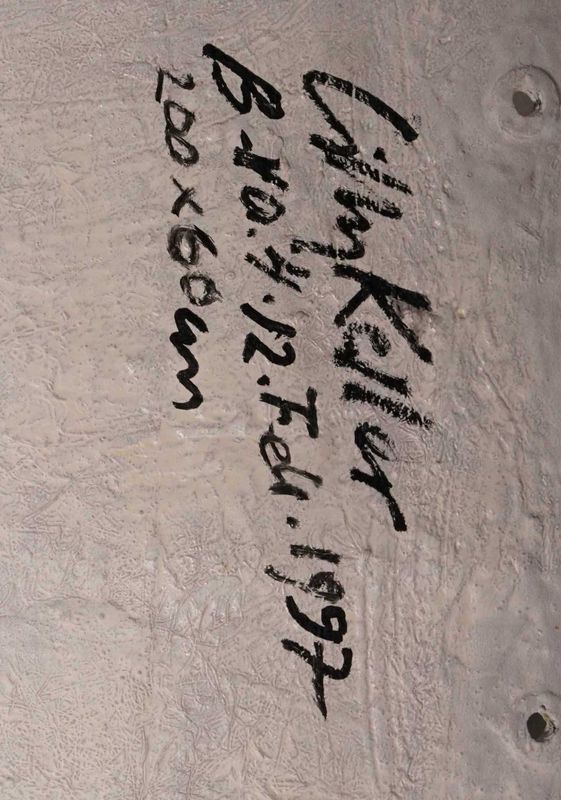 Lilly Keller
B-No.4.12.Feb.1997
200 x 60 cm